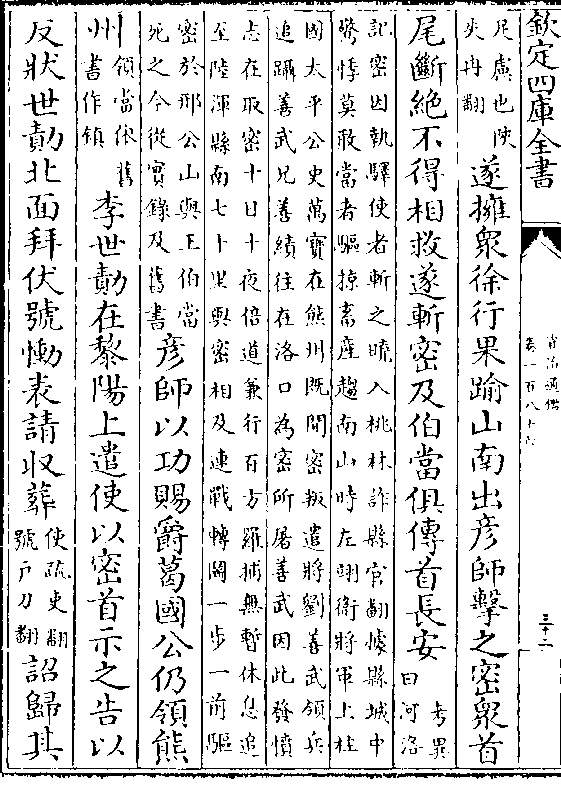 欽定四庫全書
資治通鑑
卷一百八十六
三十二
足慮也陝
失冉翻
遂擁衆徐行果踰山南出彥師擊之密衆首
尾斷絶不得相救遂斬密及伯當俱傳首長安
考異
曰河洛
記密因執驛使者斬之曉入桃林詐縣官翻據縣城中
驚悸莫敢當者驅掠畜產趨南山時左翊衛將軍上柱
國太平公史萬寶在熊州既聞密叛遣將劉善武領兵
追躡善武兄善績往在洛口為密所屠善武因此發憤
志在取密十日十夜倍道兼行百方羅捕無暫休息追
至陸渾縣南七十里與密相及連戰轉鬭一步一前驅
密於邢公山與王伯當
死之今從實錄及舊書
彥師以功賜爵葛國公仍領熊
州
領當依舊
書作鎮
李世勣在黎陽上遣使以密首示之告以
反狀世勣北面拜伏號慟表請收葬
使疏吏翻
號戶刀翻
詔歸其